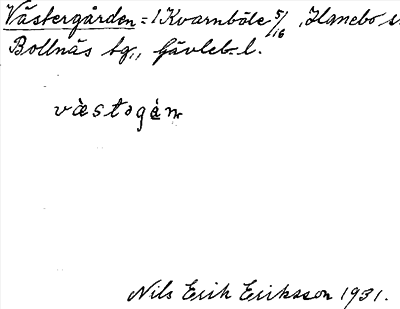 Västergården = 1 Kvarnböle 5/16, Hanebo s.
Bollnäs tg., Gävleb. l.
västəgán
Nils Erik Eriksson 1931.